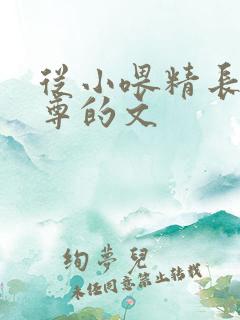 從小喂精長
尊的文
絢夢兒
未经同意禁止转载